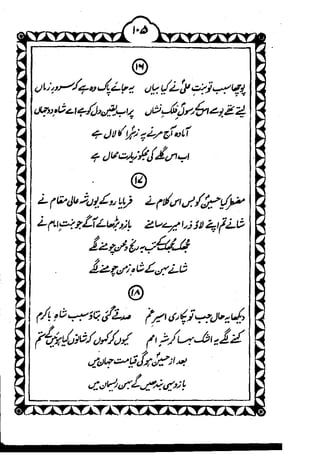 ۱۰۵
۱۶
پوچھا سبب تو بنت علیؑ نے کیا بیاں یہ جائے پاک وہ ہے کہ سرور زماں
لیتے تھے بوسے اس کے رسولؐ فلک نشاں پر اب یقین دل کو ہے اے شاہ دو جہاں
آمادہ آج مرنے پہ زہراؑ کا لال ہے
اب اس گلے کی مجھ کو زیارت محال ہے
۱۷
مضطر کیا حسینؑ کو بس اس کلام نے فرمایا رو کے یوں شہ عالی مقام نے
شانے تم اپنے لاؤ ذرا میرے سامنے بازو بڑھائے آگے جو بنت امام نے
جھک جھک کے سب رنج و محن چومنے لگے
شانے بہن کے شاہ زمن چومنے لگے
۱۸
دیکھا یہ حال جب تو پکاری اسیر غم صدقے گئی بتاؤ سبب شاہ باکرم
کہنے لگے یہ اشک بہا کر شہ امم کیوں کر کہوں کہ شانوں کو کیا چومتے ہیں ہم
بعد از حسینؑ ہو گی قیامت جہان میں
بازو یہیں بندھیں گے بہن ریسمان میں